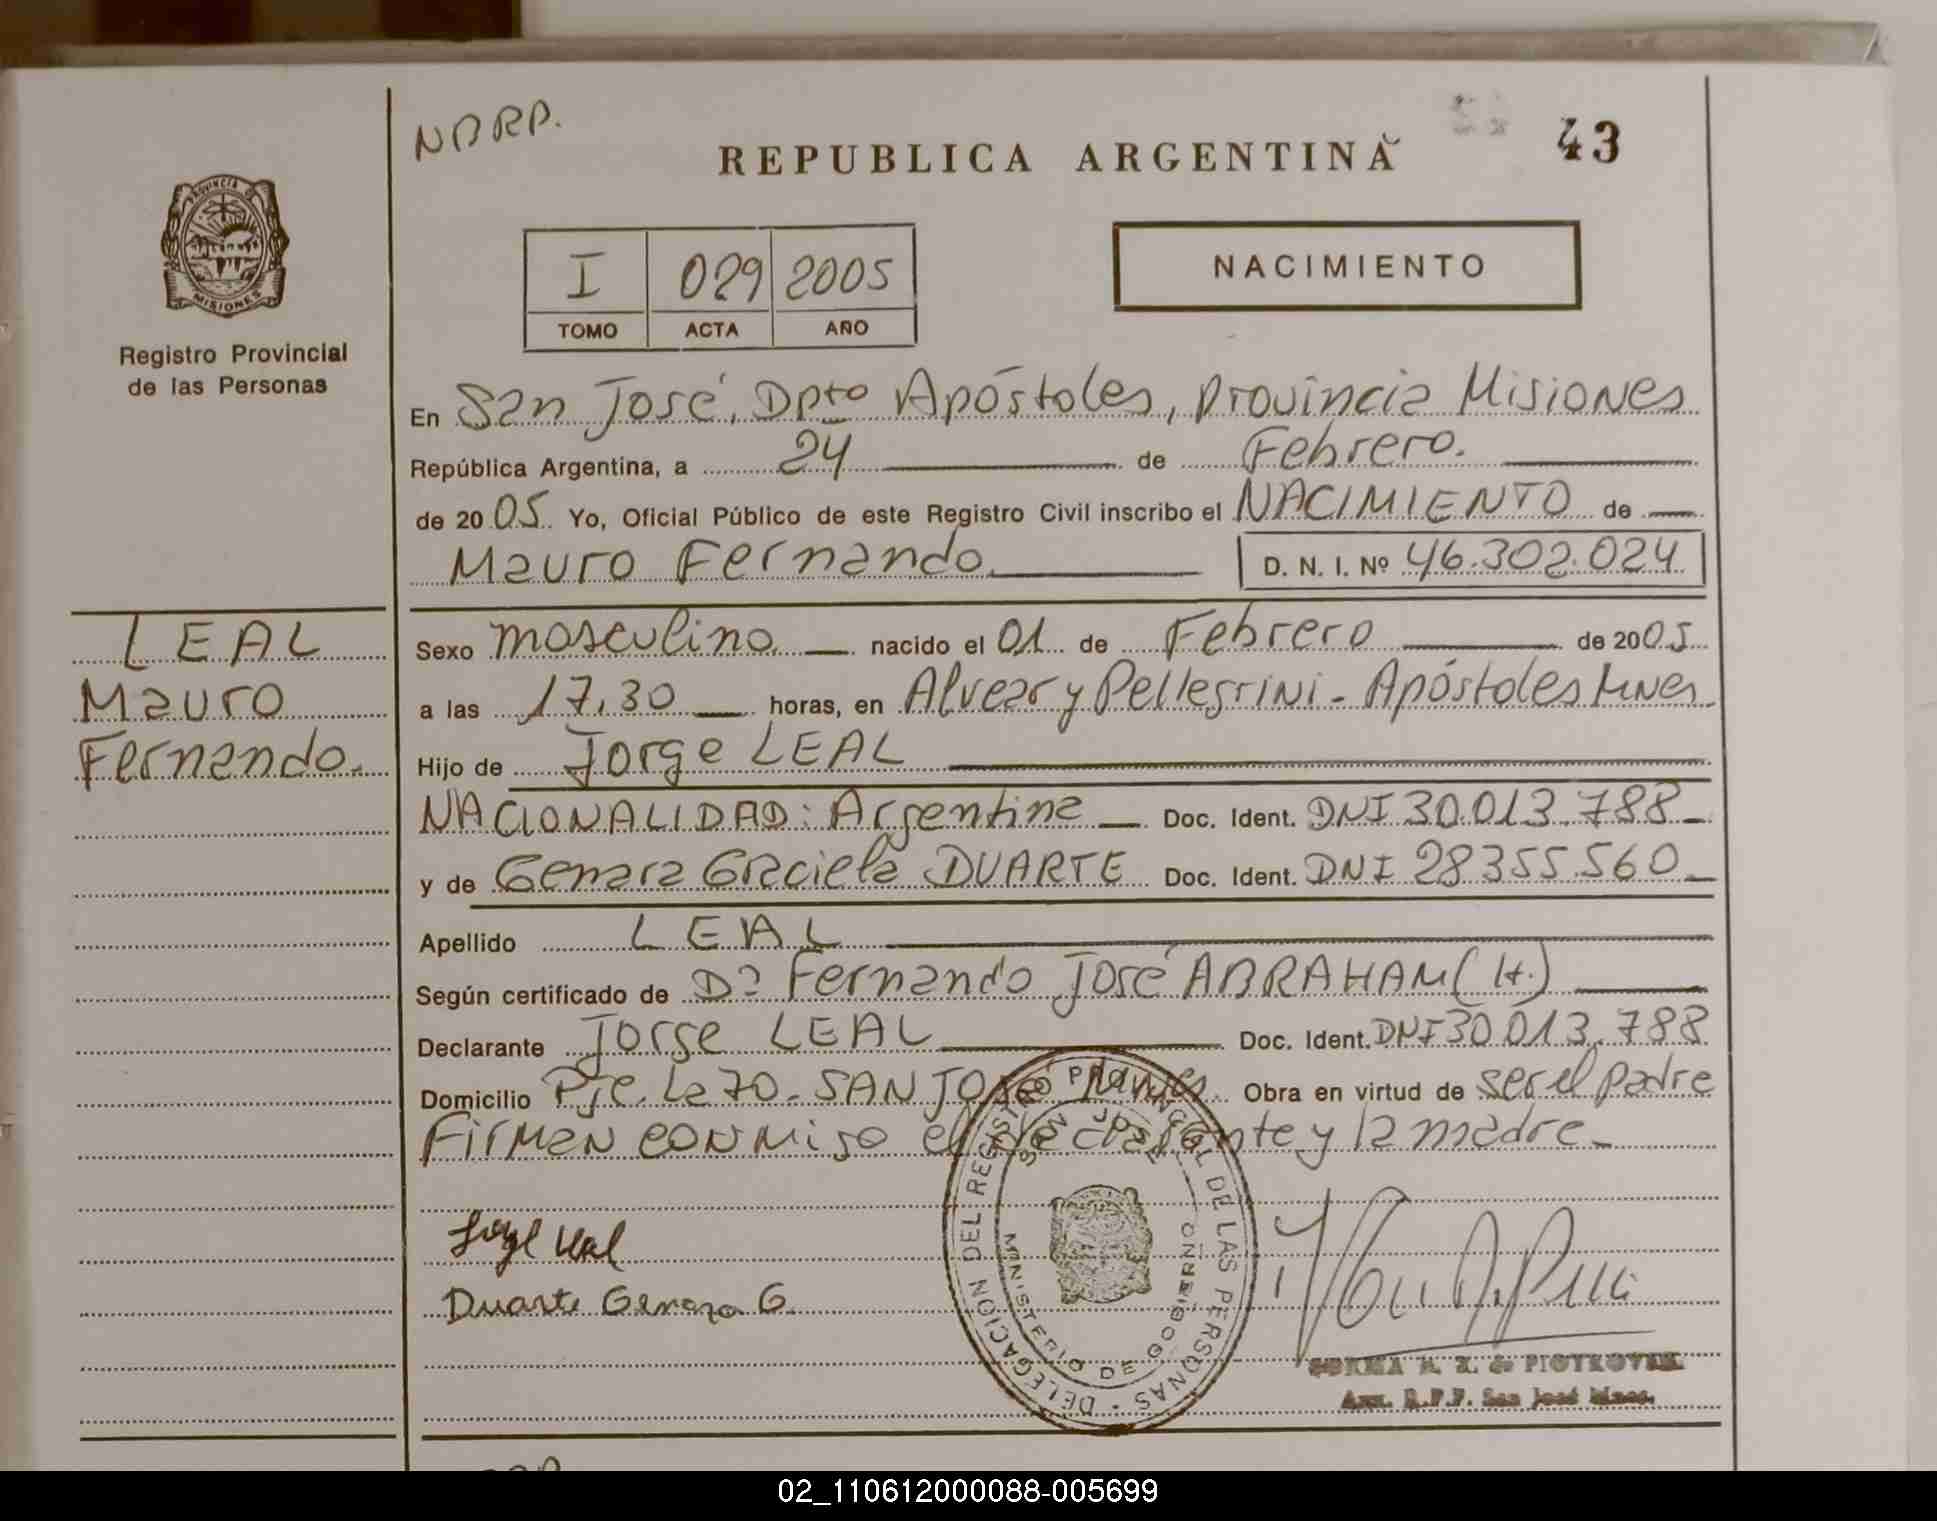 NBRP.
REPUBLICA ARGENTINA
43
PROVINCIA DE
MISIONES
Registro Provincial
de las Personas
I 029 2005
TOMO ACTA AÑO
NACIMIENTO
En San José, Dpto Apóstoles, Provincia Misiones
República Argentina, a 24 de Febrero.
de 2005. Yo, Oficial Público de este Registro Civil inscribo el NACIMIENTO de
Mauro Fernando
D. N. I. Nº 46.302.024
LEAL
Mauro
Fernando.
Sexo masculino nacido el 01 de Febrero de 2005
a las 17,30 horas, en Alvear y Pellegrini - Apóstoles Mnes.
Hijo de Jorge LEAL
NACIONALIDAD: Argentina Doc. Ident. DNI 30.013.788
y de Genara Graciela DUARTE Doc. Ident. DNI 28355.560
Apellido LEAL
Según certificado de Dr Fernando José ABRAHAM (H.)
Declarante Jorge LEAL Doc. Ident. DNI 30 013.788
Domicilio Pje. La 70 - SAN José Mnes. Obra en virtud de ser el padre
Firman conmigo el declarante y la madre.
Jorge Leal
Duarte Genara G
DELEGACION DEL REGISTRO PROVINCIAL DE LAS PERSONAS
SAN JOSE
MINISTERIO DE GOBIERNO
de PIOTROVSK
R.P.P. San José Mnes.
02_110612000088-005699